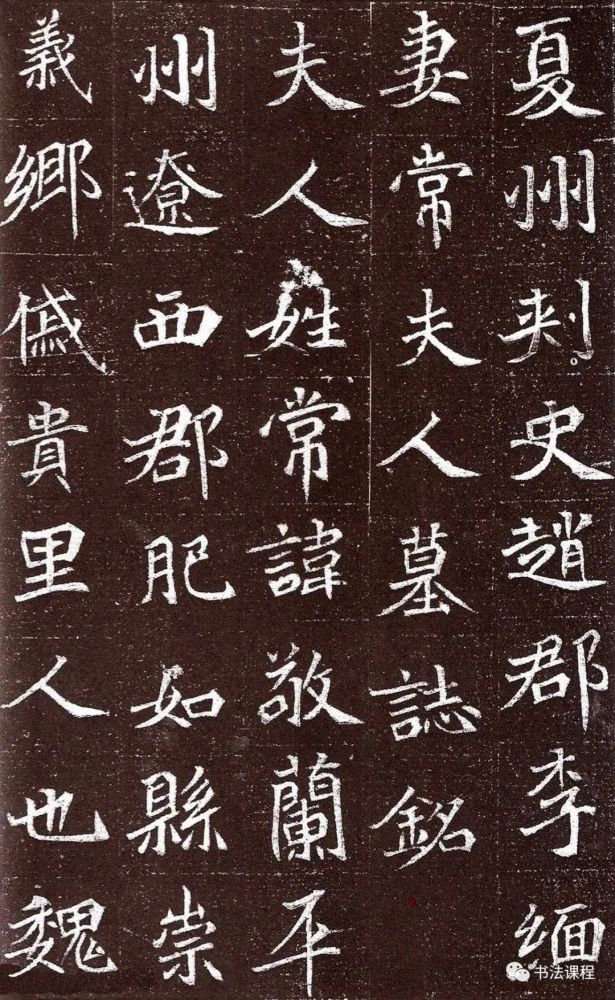 夏州刺史趙郡李緬
妻常夫人墓誌銘
夫人姓常諱敬蘭平
州遼西郡肥如縣崇
義鄉戚貴里人也魏
书法课程